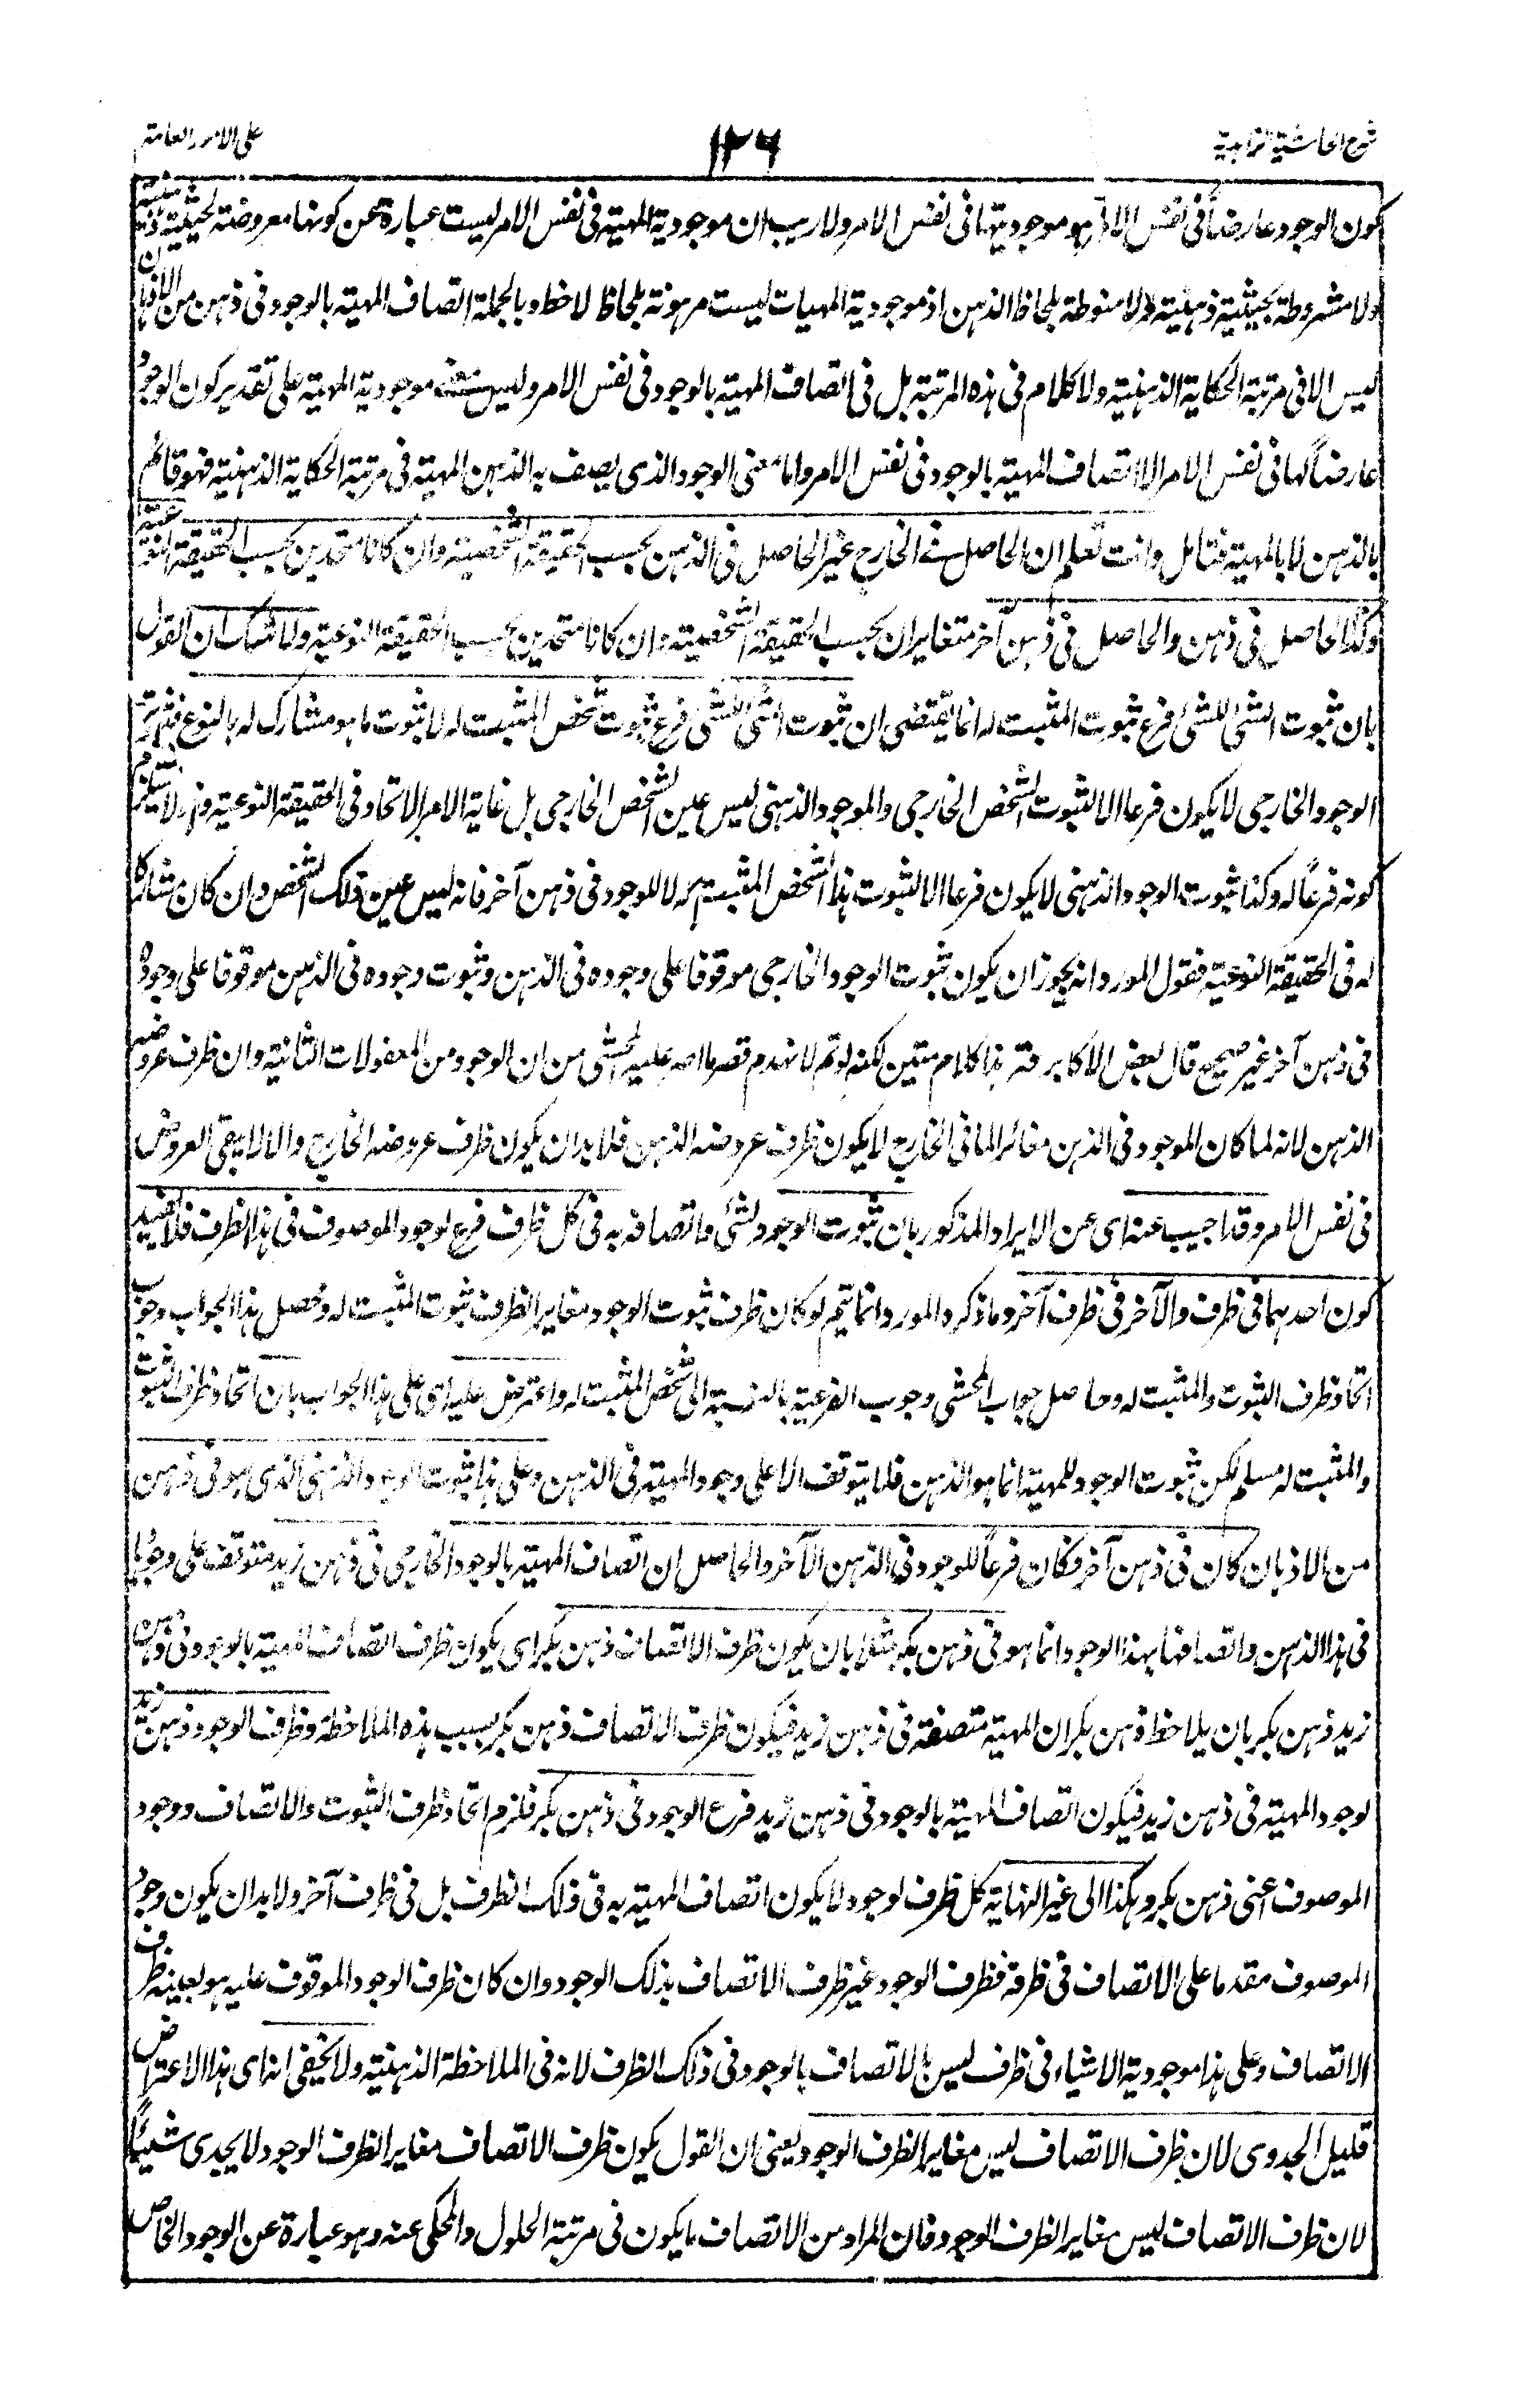 شرح الحاشية الزاهدية
١٢٦
على الامور العامة
كون الوجود عارضاً فى نفس الامر هو موجوديتها فى نفس الامر ولا ريب ان موجودية المهية فى نفس الامر ليست عبارة عن كونها معروضة لحيثية ذهنية
ولا مشروطة بحيثية ذهنية ولا منوطة بلحاظ الذهن اذ موجودية المهيات ليست مرهونة بلحاظ لاحظ وبالجملة اتصاف المهية بالوجود فى ذهن من الاذهان
ليس الا فى مرتبة الحكاية الذهنية ولا كلام فى هذه المرتبة بل فى اتصاف المهية بالوجود فى نفس الامر وليس معنى موجودية المهية على تقدير كون الوجود
عارضاً لها فى نفس الامر الا اتصاف المهية بالوجود فى نفس الامر واما معنى الوجود الذى يصف به الذهن المهية فى مرتبة الحكاية الذهنية فهو قائم
بالذهن لا بالمهية فتامل وانت تعلم ان الحاصل فى الخارج غير الحاصل فى الذهن بحسب الحقيقة الشخصية وان كانا متحدين بحسب الحقيقة النوعية
وكذا الحاصل فى ذهن والحاصل فى ذهن آخر متغايران بحسب الحقيقة الشخصية وان كانا متحدين بحسب الحقيقة النوعية ولا شك ان القول
بان ثبوت الشئ للشئ فرع ثبوت المثبت له انما يقتضى ان ثبوت الشئ للشئ فرع ثبوت شخص المثبت له لا ثبوت ما هو مشارك له بالنوع فثبوت
الوجود الخارجى لا يكون فرعا الا لثبوت الشخص الخارجى والموجود الذهنى ليس عين الشخص الخارجى بل غاية الامر الاتحاد فى الحقيقة النوعية وهو لا يستلزم
كونه فرعاً له وكذا ثبوت الوجود الذهنى لا يكون فرعا الا لثبوت هذا الشخص المثبت له لا للوجود فى ذهن آخر فانه ليس عين ذلك الشخص وان كان مشاركا
له فى الحقيقة النوعية فقول المورد انه يجوز ان يكون ثبوت الوجود الخارجى موقوفا على وجوده فى الذهن وثبوت وجوده فى الذهن موقوفا على وجوده
فى ذهن آخر غير صحيح قال بعض الاكابر قده هذا كلام متين لكنه لو تم لانهدم قصر ما اصر عليه المحشى من ان الوجود من المعقولات الثانية وان ظرف عروضه
الذهن لانه لما كان الموجود فى الذهن مغائرا لما فى الخارج لا يكون ظرف عروضه الذهن فلا بد ان يكون ظرف عروضه الخارج والا لا يبقى العروض
فى نفس الامر وقد اجيب عنه اى عن الايراد المذكور بان ثبوت الوجود لشئ واتصافه به فى كل ظرف فرع لوجود الموصوف فى هذا الظرف فلا يفيد
كون احدهما فى ظرف والآخر فى ظرف آخر وما ذكره المورد انما يتم لو كان ظرف ثبوت الوجود مغايرا لظرف ثبوت المثبت له ومحصل هذا الجواب وجوب
اتحاد ظرف الثبوت والمثبت له وحاصل جواب المحشى وجوب الفرعية بالنسبة الى شخص المثبت له واعترض عليه اى على هذا الجواب بان اتحاد ظرف الثبوت
والمثبت له مسلم لكن ثبوت الوجود للمهية انما هو الذهن فلا يتوقف الا على وجود المهية فى الذهن وعلى هذا ثبوت الوجود الذهنى الذى هو فى ذهن
من الاذهان كان فى ذهن آخر فكان فرعاً للوجود فى الذهن الآخر والحاصل ان اتصاف المهية بالوجود الخارجى فى ذهن زيد متوقف على وجودها
فى هذا الذهن واتصافها بهذا الوجود انما هو فى ذهن بكر مثلا بان يكون ظرف الاتصاف ذهن بكر اى يكون ظرف اتصاف المهية بالوجود فى ذهن
زيد ذهن بكر بان يلاحظ ذهن بكر ان المهية متصفة فى ذهن زيد فيكون ظرف الاتصاف ذهن بكر بسبب هذه الملاحظة وظرف الوجود ذهن زيد
لوجود المهية فى ذهن زيد فيكون اتصاف المهية بالوجود فى ذهن زيد فرع الوجود فى ذهن بكر فلزم اتحاد ظرف الثبوت والاتصاف ووجود
الموصوف اعنى ذهن بكر وهكذا الى غير النهاية كل ظرف لوجود لا يكون اتصاف المهية به فى ذلك الظرف بل فى ظرف آخر ولا بد ان يكون وجود
الموصوف مقدما على الاتصاف فى ظرفه فظرف الوجود غير ظرف الاتصاف بذلك الوجود وان كان ظرف الوجود الموقوف عليه هو بعينه ظرف
الاتصاف وعلى هذا موجودية الاشياء فى ظرف ليس بالاتصاف بالوجود فى ذلك الظرف لانه فى الملاحظة الذهنية ولا يخفى انه اى هذا الاعتراض
قليل الجدوى لان ظرف الاتصاف ليس مغايرا لظرف الوجود يعنى ان القول بكون ظرف الاتصاف مغايرا لظرف الوجود لا يجدى شيئاً
لان ظرف الاتصاف ليس مغايرا لظرف الوجود فان المراد من الاتصاف ما يكون فى مرتبة الحلول والمحكى عنه وهو عبارة عن الوجود الخاص